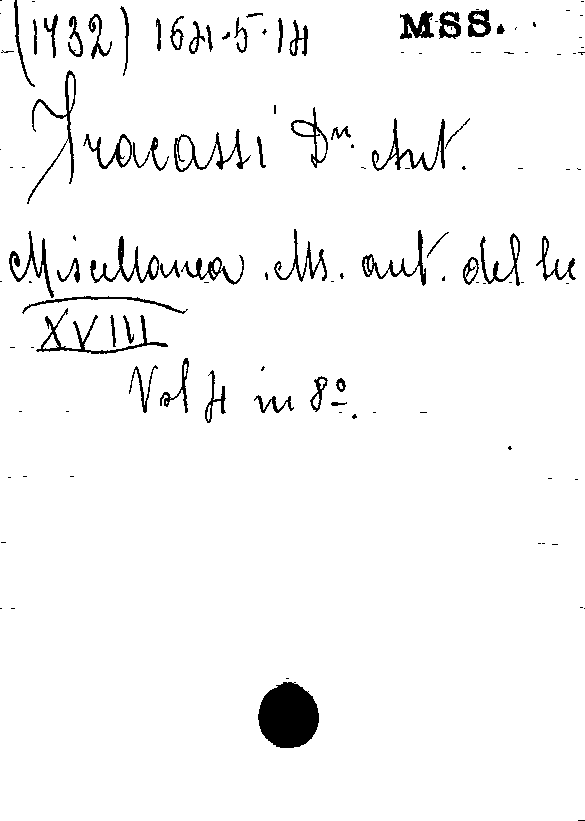 (1732) 164.5.14 MSS.
Fracassi Dr. Ant.
Miscellanea. Ms. aut. del Sec
XVIII
Vol 4 in 8º.